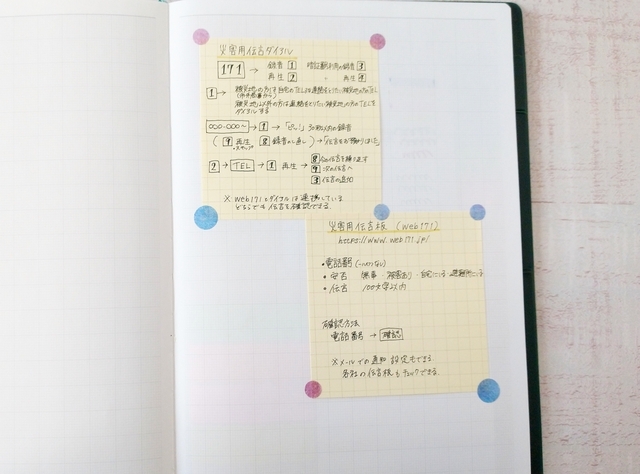 災害用伝言ダイヤル
171 → 録音 1 暗証番利用の録音 3
再生 2 〃 再生 4
1 → 被災地の方は自宅のTELor連絡をとりたい被災地の方のTEL
(市外局番から)
被災地以外の方は連絡をとりたい被災地の方のTELを
ダイヤルする
000-000~ → 1 → 「ピッ!」30秒以内の録音
(9 再生 8 録音のし直し) →「伝言をお預かりしました」
2 → TEL → 1 再生 → 8 今の伝言を繰り返す
9 次の伝言へ
3 伝言の追加
※ web171とダイヤルは連携している
どちらでも伝言を確認できる。
災害用伝言板 (web171)
https://www.web171.jp/
・電話番 (ハイフンなし)
・安否 無事・被害あり・自宅にいる・避難所にいる
・伝言 100文字以内
確認方法
電話番号 → 確認
※メールでの通知 設定もできる
各社の伝言板もチェックできる。